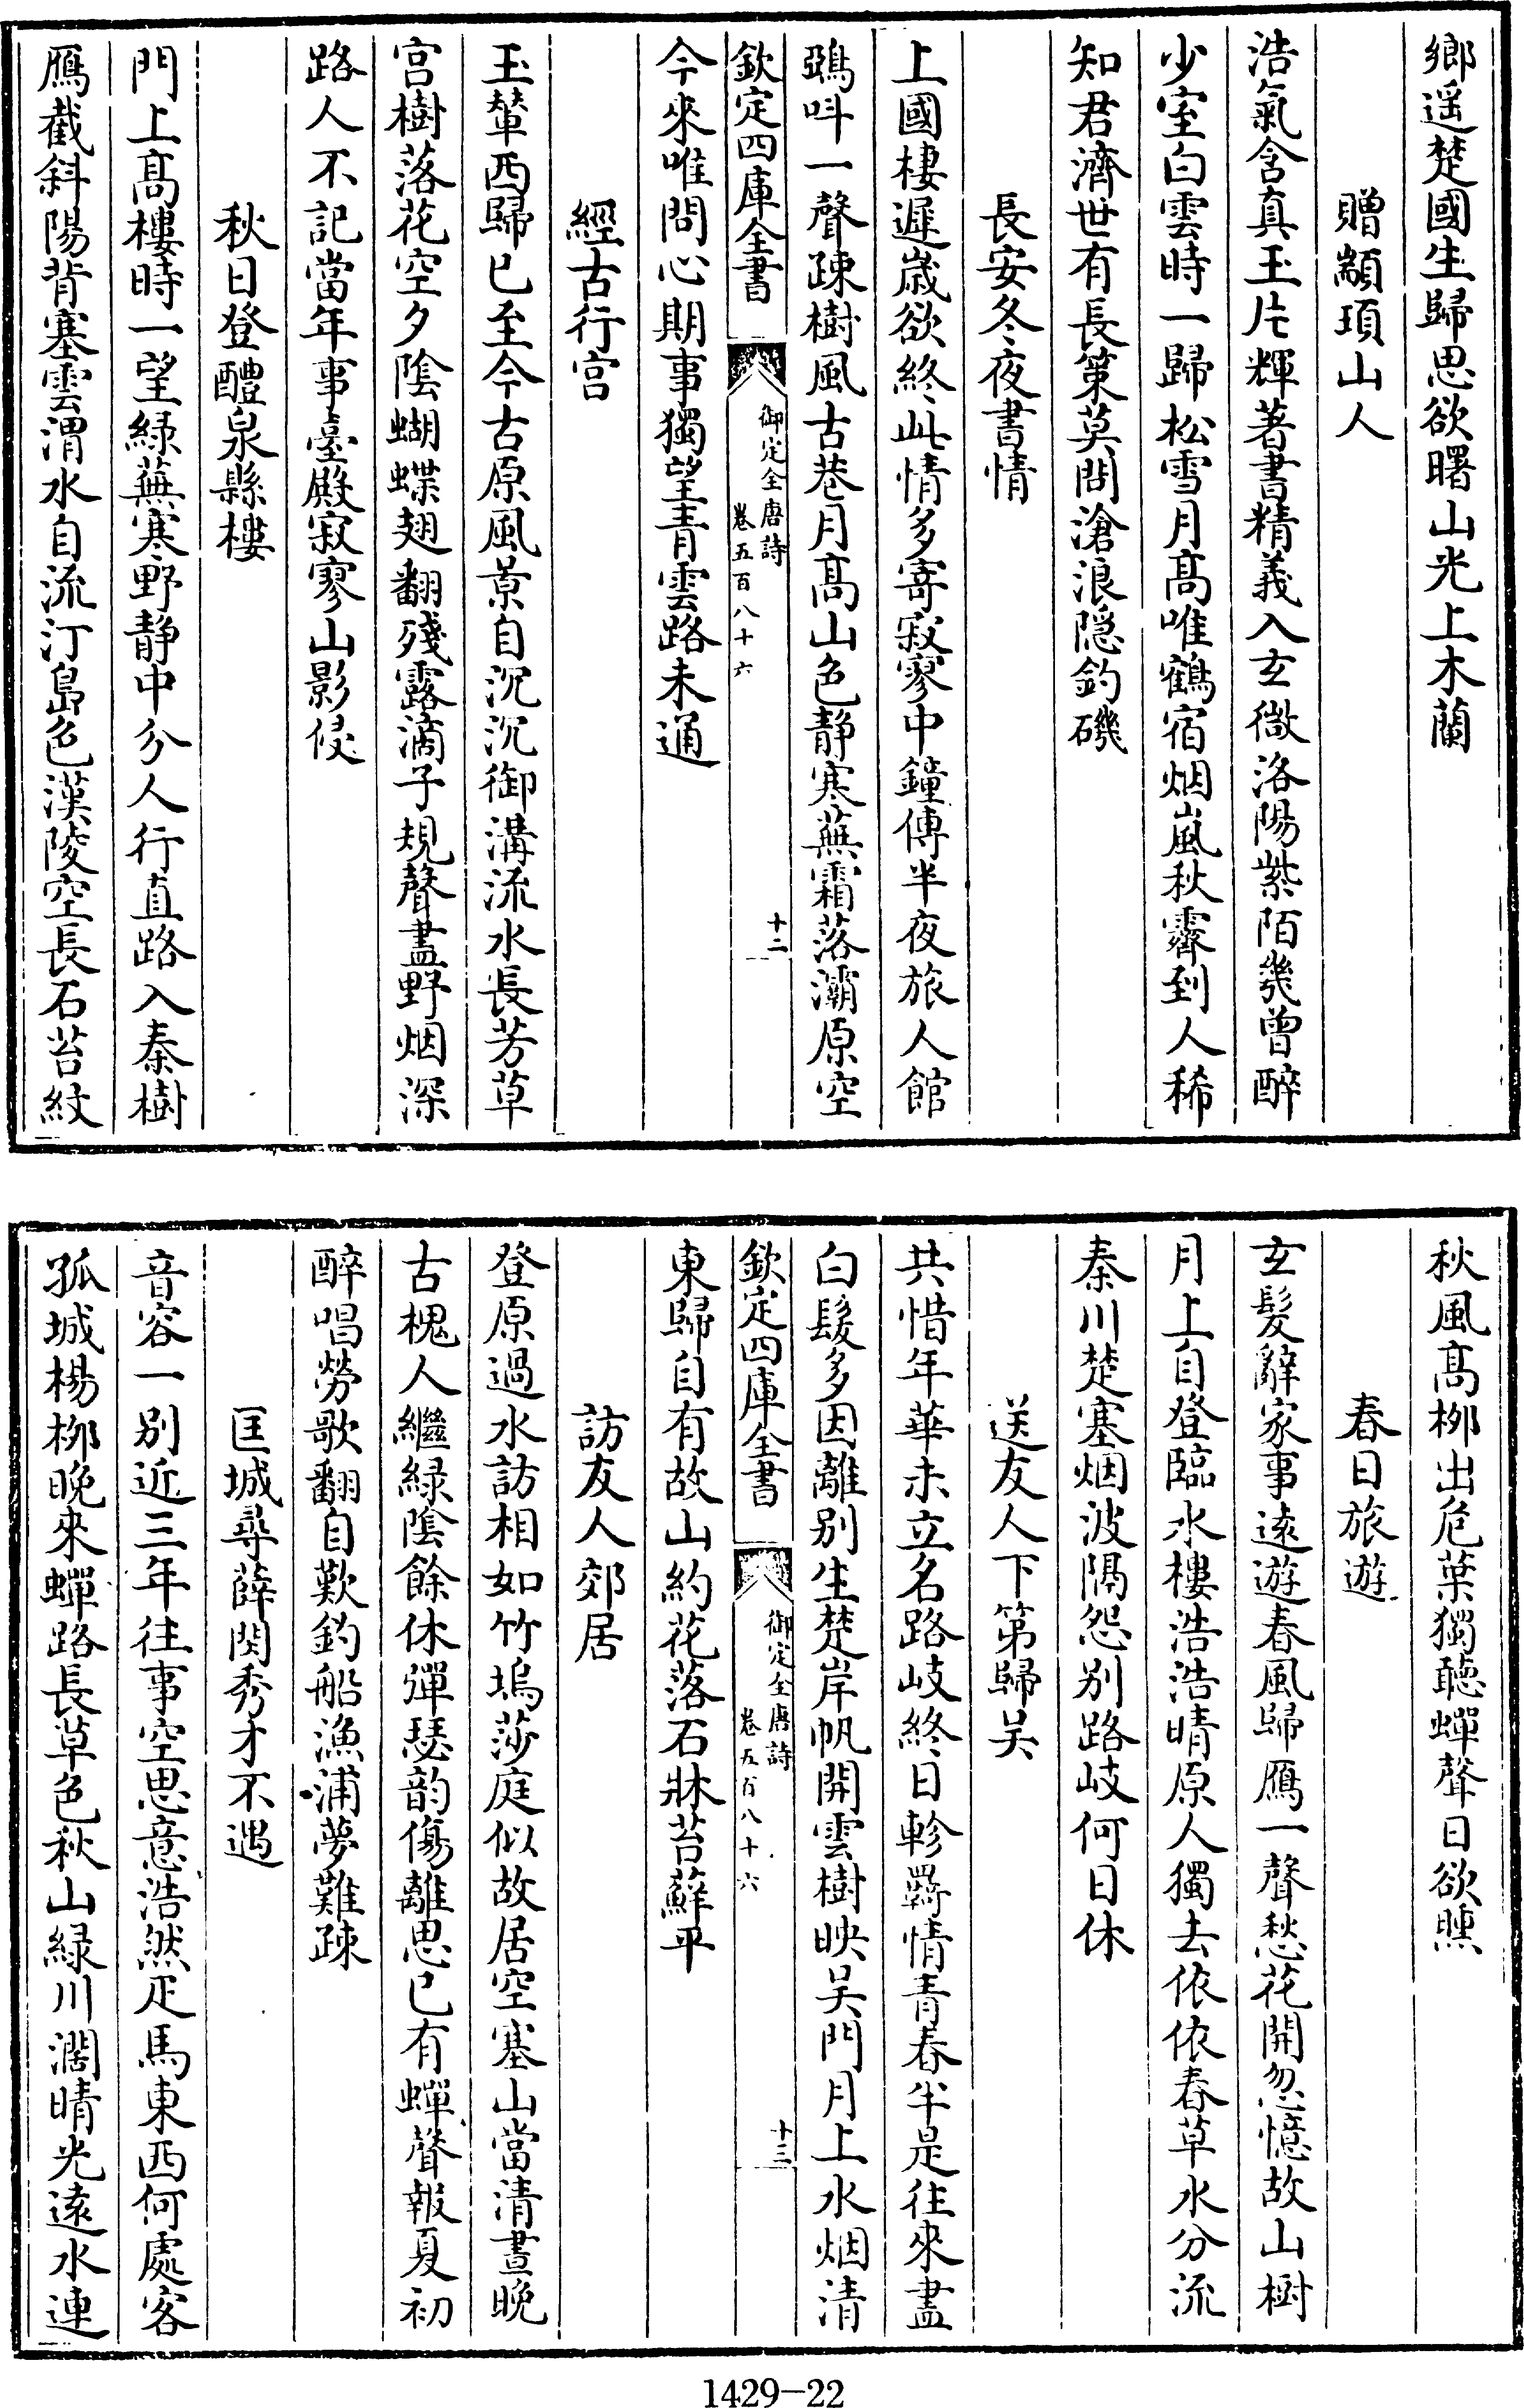 鄉遥楚國生歸思欲曙山光上木蘭
贈顓頊山人
浩氣含真玉片輝著書精義入玄微洛陽紫陌幾曾醉
少室白雲時一歸松雪月髙唯鶴宿烟嵐秋霽到人稀
知君濟世有長策莫問滄浪隠釣磯
長安冬夜書情
上國棲遲嵗欲終此情多寄寂寥中鐘傳半夜旅人館
鵶呌一聲疎樹風古巷月髙山色静寒蕪霜落灞原空
欽定四庫全書
御定全唐詩
卷五百八十六
十二
今來唯問心期事獨望青雲路未通
經古行宫
玉輦西歸已至今古原風景自沉沉御溝流水長芳草
宫樹落花空夕陰蝴蝶翅翻殘露滴子規聲盡野烟深
路人不記當年事臺殿寂寥山影侵
秋日登醴泉縣樓
門上髙樓時一望緑蕪寒野静中分人行直路入秦樹
鴈截斜陽背塞雲渭水自流汀島色漢陵空長石苔紋
秋風髙栁出危葉獨聽蟬聲日欲曛
春日旅遊
玄髮辭家事逺遊春風歸鴈一聲愁花開忽憶故山樹
月上自登臨水樓浩浩晴原人獨去依依春草水分流
秦川楚塞烟波隔怨别路岐何日休
送友人下第歸吴
共惜年華未立名路岐終日軫羇情青春半是往來盡
白髮多因離别生楚岸帆開雲樹映吴門月上水烟清
欽定四庫全書
御定全唐詩
卷五百八十六
十三
東歸自有故山約花落石牀苔蘚平
訪友人郊居
登原過水訪相如竹塢莎庭似故居空塞山當清晝晚
古槐人繼緑陰餘休彈瑟韵傷離思已有蟬聲報夏初
醉唱勞歌翻自歎釣船漁浦夢難疎
匡城尋薛閔秀才不遇
音容一别近三年往事空思意浩然疋馬東西何處客
孤城楊栁晚來蟬路長草色秋山緑川濶晴光逺水連
1429-22